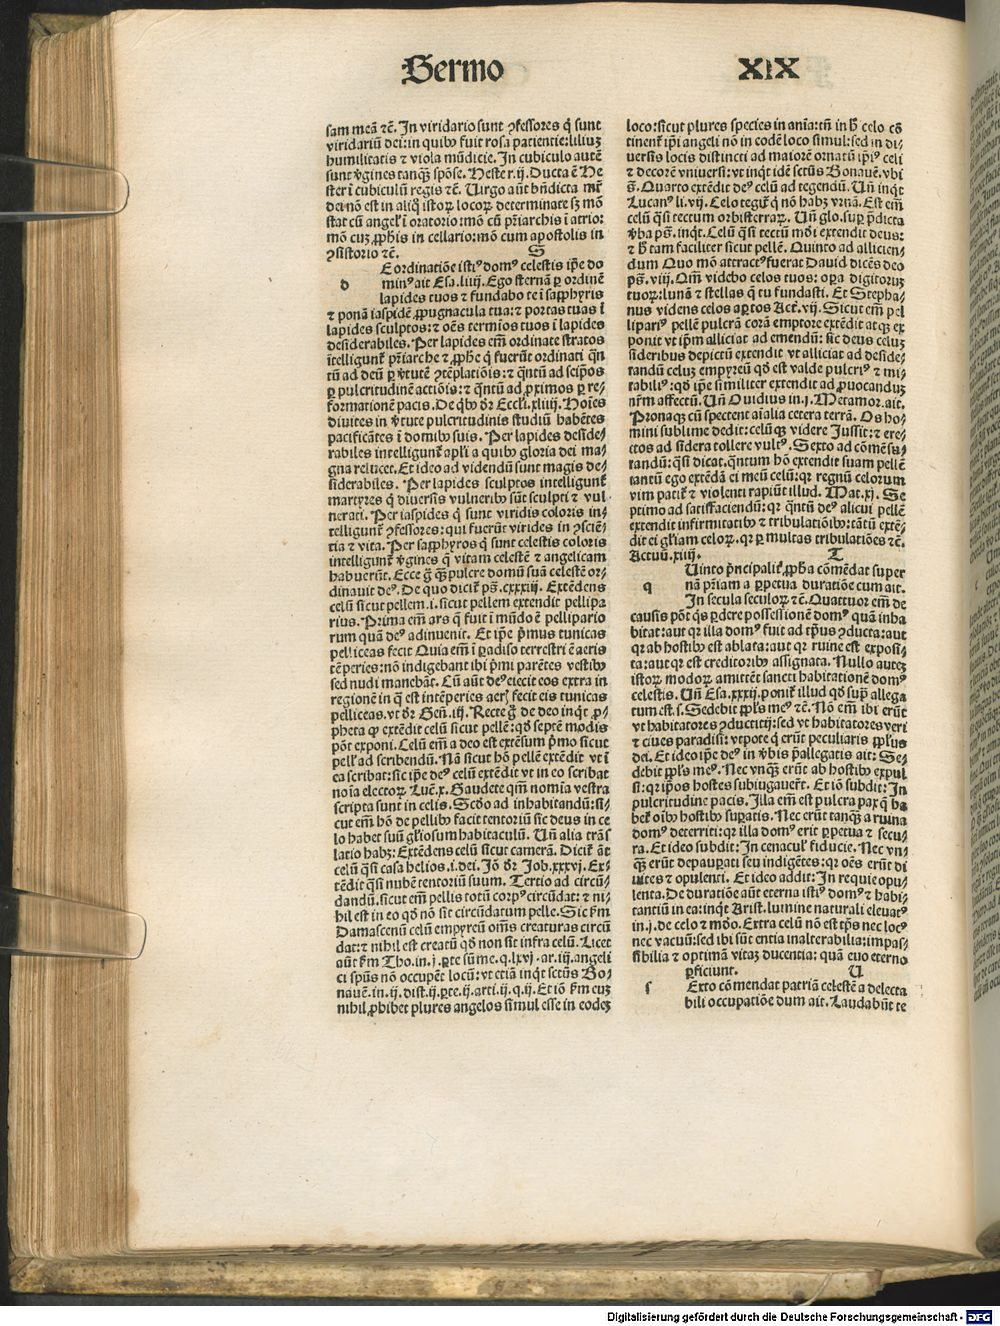 Sermo XIX
sam meā ⁊c̄. In viridario sunt ꝯfessores q̄ sunt
viridariū dei: in quibꝰ fuit rosa patientie: liliuꝫ
humilitatis ⁊ viola mūdicie. In cubiculo autē
sunt v̄gines tanqꝫ spōse. Hester.ij. Ducta ē He
ster ī cubiculū regis ⁊c̄. Virgo aūt bn̄dicta mr̄
dei nō est in aliq̄ istoꝝ locoꝝ determinate sꝫ mō
stat cū angel' ī oratorio: mō cū pr̄iarchis ī atrio:
mō cuꝫ ꝓphis in cellario: mō cum apostolis in
ꝯsistorio ⁊c̄. S
d E ordinatiōe istiꝰ domꝰ celestis ip̄e do
minꝰ ait Esa.liiij. Ego sternā ꝑ ordinē
lapides tuos ⁊ fundabo te ī sapphyris
⁊ ponā iaspidē ꝓpugnacula tua: ⁊ portas tuas ī
lapides sculptos: ⁊ oēs termīos tuos ī lapides
desiderabiles. Per lapides em̄ ordinate stratos
ītelligunt̉ pr̄iarche ⁊ ꝓphe q̄ fuerūt ordinati qn̄
tū ad deū ꝑ v̄tutē ꝯtēplatiōis: ⁊ qn̄tū ad seip̄os
ꝑ pulcritudinē actiōis: ⁊ qn̄tū ad ꝓximos ꝑ re⸗
formationē pacis. De qͥbꝰ dr̄ Eccl'i.xliiij. Hoīes
diuites in v̄tute pulcritudinis studiū habētes
pacificātes ī domibꝰ suis. Per lapides deside⸗
rabiles intelligunt̉ apl'i a quibꝰ gloria dei ma⸗
gna relucet. Et ideo ad videndū sunt magis de⸗
siderabiles. Per lapides sculptos intelligunt̉
martyres q̄ diuersis vulneribꝰ sūt sculpti ⁊ vul⸗
nerati. Per iaspides q̄ sunt viridis coloris in⸗
telligunt̉ ꝯfessores: qui fuerūt virides in ꝯsciē⸗
tia ⁊ vita. Per sapphyros q̄ sunt celestis coloris
intelligunt̉ v̄gines q̄ vitam celestē ⁊ angelicam
habuerūt. Ecce g̊ qꝫ pulcre domū suā celestē or⸗
dinauit deꝰ. De quo dicit̉ ps̄.cxxxiij. Extēdens
celū sicut pellem.i. sicut pellem extendit pellipa
rius. Prima em̄ ars q̄ fuit ī mūdo ē pellipario
rum quā deꝰ adinuenit. Et ip̄e p̄mus tunicas
pelliceas fecit Quia em̄ ī ꝑadiso terrestri ē aeris
tēperies: nō indigebant ibi p̄mi parētes vestibꝰ
sed nudi manebāt. Cū aūt deꝰ eiecit eos extra in
regionē in q̄ est intēperies aer̉ fecit eis tunicas
pelliceas. vt dr̄ Gen̄.iij. Recte g̊ de deo inqͥt ꝓ⸗
pheta ꝙ extēdit celū sicut pellē: qd̄ septē modis
pōt exponi. Celū em̄ a deo est extēsum p̄mo sicut
pell' ad scribendū. Nā sicut hō pellē extēdit vt ī
ea scribat: sic ip̄e deꝰ celū extēdit vt in eo scribat
noīa electoꝝ Luc̄.x. Gaudete qm̄ nomīa vestra
scripta sunt in celis. Scd̄o ad inhabitandū: si⸗
cut em̄ hō de pellibꝰ facit tentoriū sic deus in ce
lo habet suū gl'iosum habitaculū. Vn̄ alia trās
latio habꝫ: Extēdens celū sicut camerā. Dicit̉ āt
celū q̄si casa helios.i. dei. Iō dr̄ Job.xxxvj. Ex⸗
tēdit q̄si nubē tentoriū suum. Tertio ad circū⸗
dandū. sicut em̄ pellis totū corpꝰ circūdat: ⁊ ni⸗
hil est in eo qd̄ nō sit circūdatum pelle. Sic ẜm
Damascenū celū empyreū om̄s creaturas circū
dat: ⁊ nihil est creatū qd̄ non sit infra celū. Licet
aūt ẜm Tho. in.j. ꝑte sūme.q.lxvj. ar.iij. angeli
ci spūs nō occupēt locū: vt etiā inqͥt sctūs Bo⸗
nauē. in.ij. dist.ij. ꝑte.ij. arti.ij. q.ij. Et iō ẜm euꝫ
nihil ꝓhibet plures angelos simul esse in eodeꝫ
loco: sicut plures species in anīa: tn̄ in h̄ celo cō
tinent̉ ip̄i angeli nō in codē loco simul: sed in di⸗
uersis locis distincti ad maiorē ornatū ip̄iꝰ celi
⁊ decorē vniuersi: vt inqͥt idē sctūs Bonauē. vbi
s̄. Quarto extēdit deꝰ celū ad tegendū. Vn̄ inqͥt
Lucanꝰ li.vij. Celo tegit̉ q̄ nō habꝫ vrnā. Est em̄
celū q̄si tectum orbis terraꝝ. Vn̄ glo. suꝑ p̄dicta
v̄ba ps̄. inqͥt. Celū q̄si tectū mōi extendit deus:
⁊ h̄ tam faciliter sicut pellē. Quinto ad allicien⸗
dum Quo mō attractꝰ fuerat Dauid dicēs deo
ps̄.viij. Qm̄ videbo celos tuos: oꝑa digitoruꝫ
tuoꝝ: lunā ⁊ stellas q̄ tu fundasti. Et Stepha⸗
nus videns celos aꝑtos Act̉.vij. Sicut em̄ pel
lipariꝰ pellē pulcrā corā emptore extēdit atqꝫ ex
ponit vt ip̄m alliciat ad emendū: sic deus celuꝫ
sideribus depictū extendit vt alliciat ad deside⸗
randū celuꝫ empyreū qd̄ est valde pulcrꝰ ⁊ mi⸗
rabilꝰ: qd̄ ip̄e similiter extendit ad ꝓuocanduꝫ
nr̄m affectū. Vn̄ Ouidius in.j. Metamor. ait.
Pronaqꝫ cū spectent aīalia cetera terrā. Os ho⸗
mini sublime dedit: celūqꝫ videre Jussit: ⁊ ere⸗
ctos ad sidera tollere vultꝰ. Sexto ad cōmēsu⸗
randū: q̄si dicat. qn̄tum hō extendit suam pellē
tantū ego extēdā ei meū celū: qꝛ regnū celorum
vim patit̉ ⁊ violenti rapiūt illud. Mat.xj. Se
ptimo ad satisfaciendū: qꝛ qn̄tū deꝰ alicui pellē
extendit infirmitatibꝰ ⁊ tribulatiōibꝰ: tātū extē⸗
dit ei gl'iam celoꝝ. qꝛ ꝑ multas tribulatiōes ⁊c̄.
Actuū.xiiij. T
q Uinto p̄ncipalit̉ ꝓpha cōmēdat super
nā pr̄iam a ꝑpetua duratiōe cum ait.
In secula seculoꝝ ⁊c̄. Quattuor em̄ de
causis pōt qͥs ꝑdere possessionē domꝰ quā inha
bitat: aut qꝛ illa domꝰ fuit ad tp̄us ꝯducta: aut
qꝛ ab hostibꝰ est ablata: aut qꝛ ruine est exposi⸗
ta: aut qꝛ est creditoribꝰ assignata. Nullo auteꝫ
istoꝝ modoꝝ amittēt sancti habitationē domꝰ
celestis. Vn̄ Esa.xxxij. ponit̉ illud qd̄ sup̄ allega
tum est.s. Sedebit ppl's meꝰ ⁊c̄. Nō em̄ ibi erūt
vt habitatores ꝯductitij: sed vt habitatores veri
⁊ ciues paradisi: vtpote q̄ erūt peculiaris ppl'us
dei. Et ideo ip̄e deꝰ in v̄bis p̄allegatis ait: Se⸗
debit ppl's meꝰ. Nec vnqꝫ erūt ab hostibꝰ expul
si: qꝛ ip̄os hostes subiugauer̄t. Et iō subdit: In
pulcritudine pacis. Illa em̄ est pulcra pax q̄ ha
bet̉ oībꝰ hostibꝰ suꝑatis. Nec erūt tanqꝫ a ruina
domꝰ deterriti: qꝛ illa domꝰ erit ꝑpetua ⁊ secu⸗
ra. Et ideo subdit: In cenacul' fiducie. Nec vn⸗
qꝫ erūt depauꝑati seu indigētes: qꝛ oēs erūt di
uites ⁊ opulenti. Et ideo addit: In requie opu⸗
lenta. De duratiōe aūt eterna istiꝰ domꝰ ⁊ habi⸗
tantiū in ea: inqͥt Arist. lumine naturali eleuatꝰ
in.j. de celo ⁊ mōo. Extra celū nō est tp̄s nec locꝰ
nec vacuū: sed ibi sūt entia inalterabilia: impas⸗
sibilia ⁊ optimā vitaꝫ ducentia: quā euo eterno
ꝑficiunt. U
s Exto cōmendat patriā celestē a delecta
bili occupatiōe dum ait. Laudabūt te
Digitalisierung gefördert durch die Deutsche Forschungsgemeinschaft - DFG